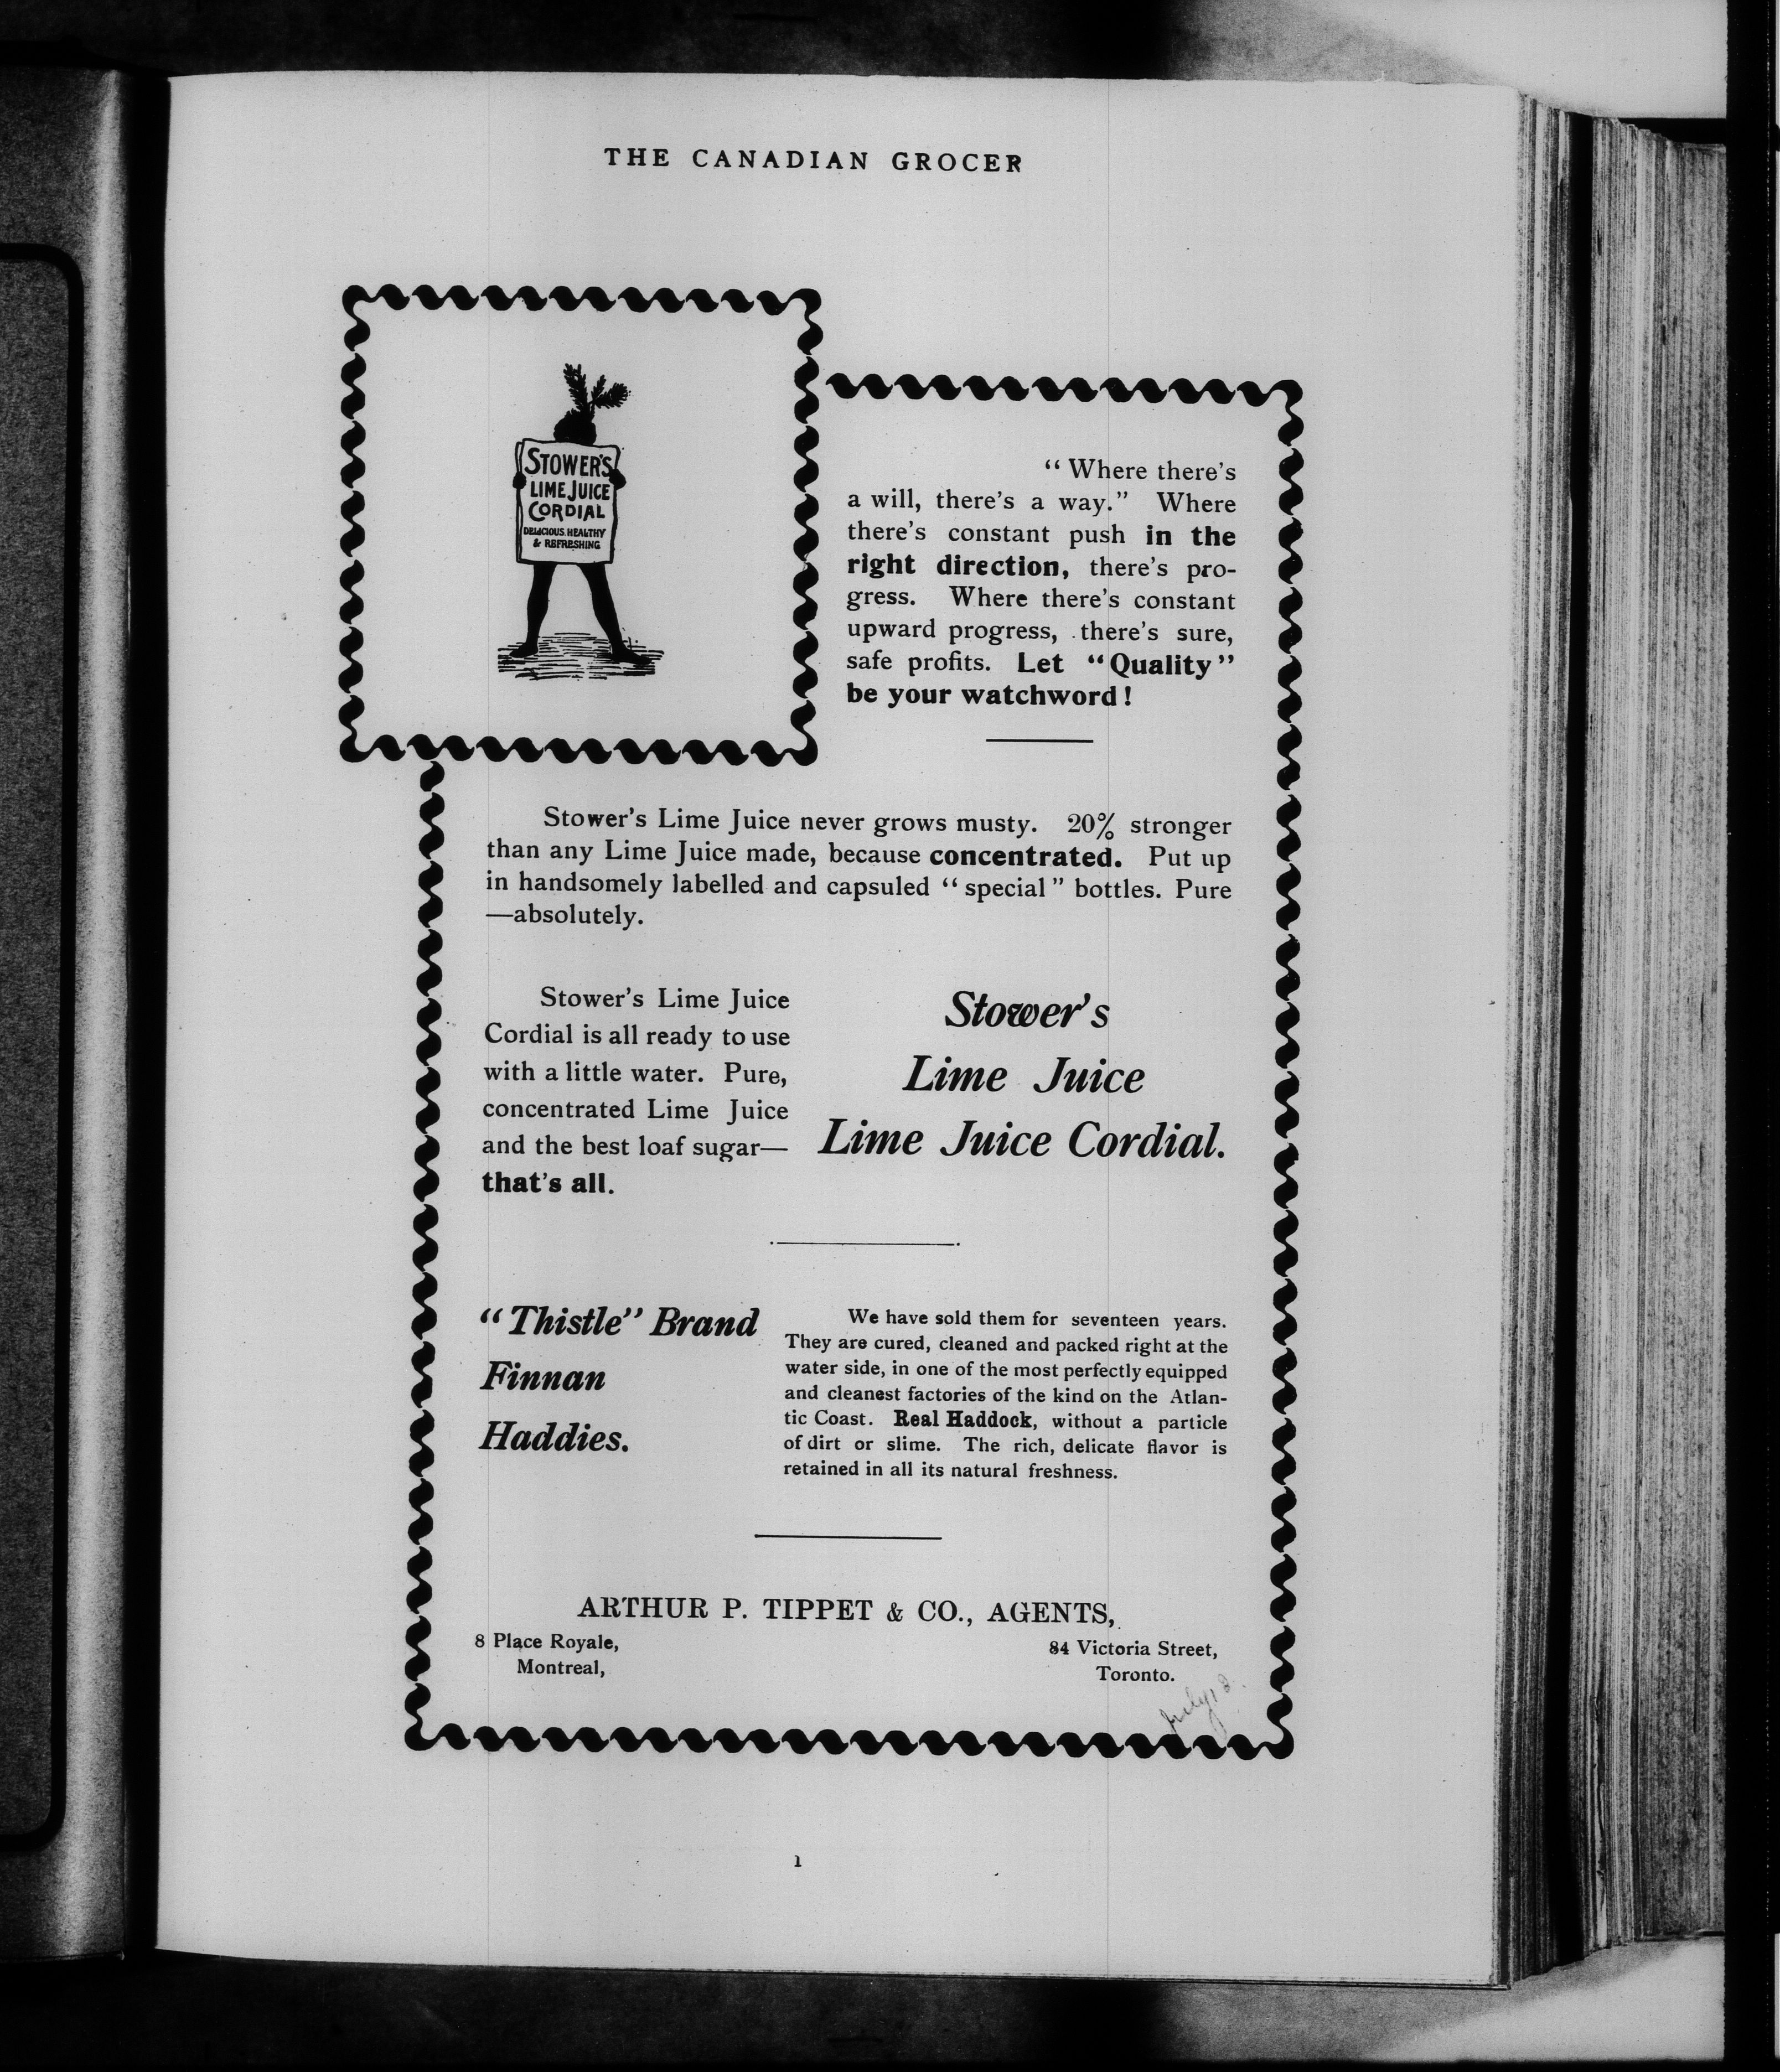 THE CANADIAN GROCER
STOWER'S
LIME JUICE
CORDIAL
DELICIOUS. HEALTHY
& REFRESHING
“Where there's
a will, there's a way.” Where
there's constant push in the
right direction, there's pro-
gress. Where there's constant
upward progress, there's sure,
safe profits. Let “Quality”
be your watchword!
Stower's Lime Juice never grows musty. 20% stronger
than any Lime Juice made, because concentrated. Put up
in handsomely labelled and capsuled “special” bottles. Pure
—absolutely.
Stower's Lime Juice
Cordial is all ready to use
with a little water. Pure,
concentrated Lime Juice
and the best loaf sugar—
that's all.
Stower's
Lime Juice
Lime Juice Cordial.
“Thistle” Brand
Finnan
Haddies.
We have sold them for seventeen years.
They are cured, cleaned and packed right at the
water side, in one of the most perfectly equipped
and cleanest factories of the kind on the Atlan-
tic Coast. Real Haddock, without a particle
of dirt or slime. The rich, delicate flavor is
retained in all its natural freshness.
ARTHUR P. TIPPET & CO., AGENTS,
8 Place Royale,
Montreal,
84 Victoria Street,
Toronto.
July
1